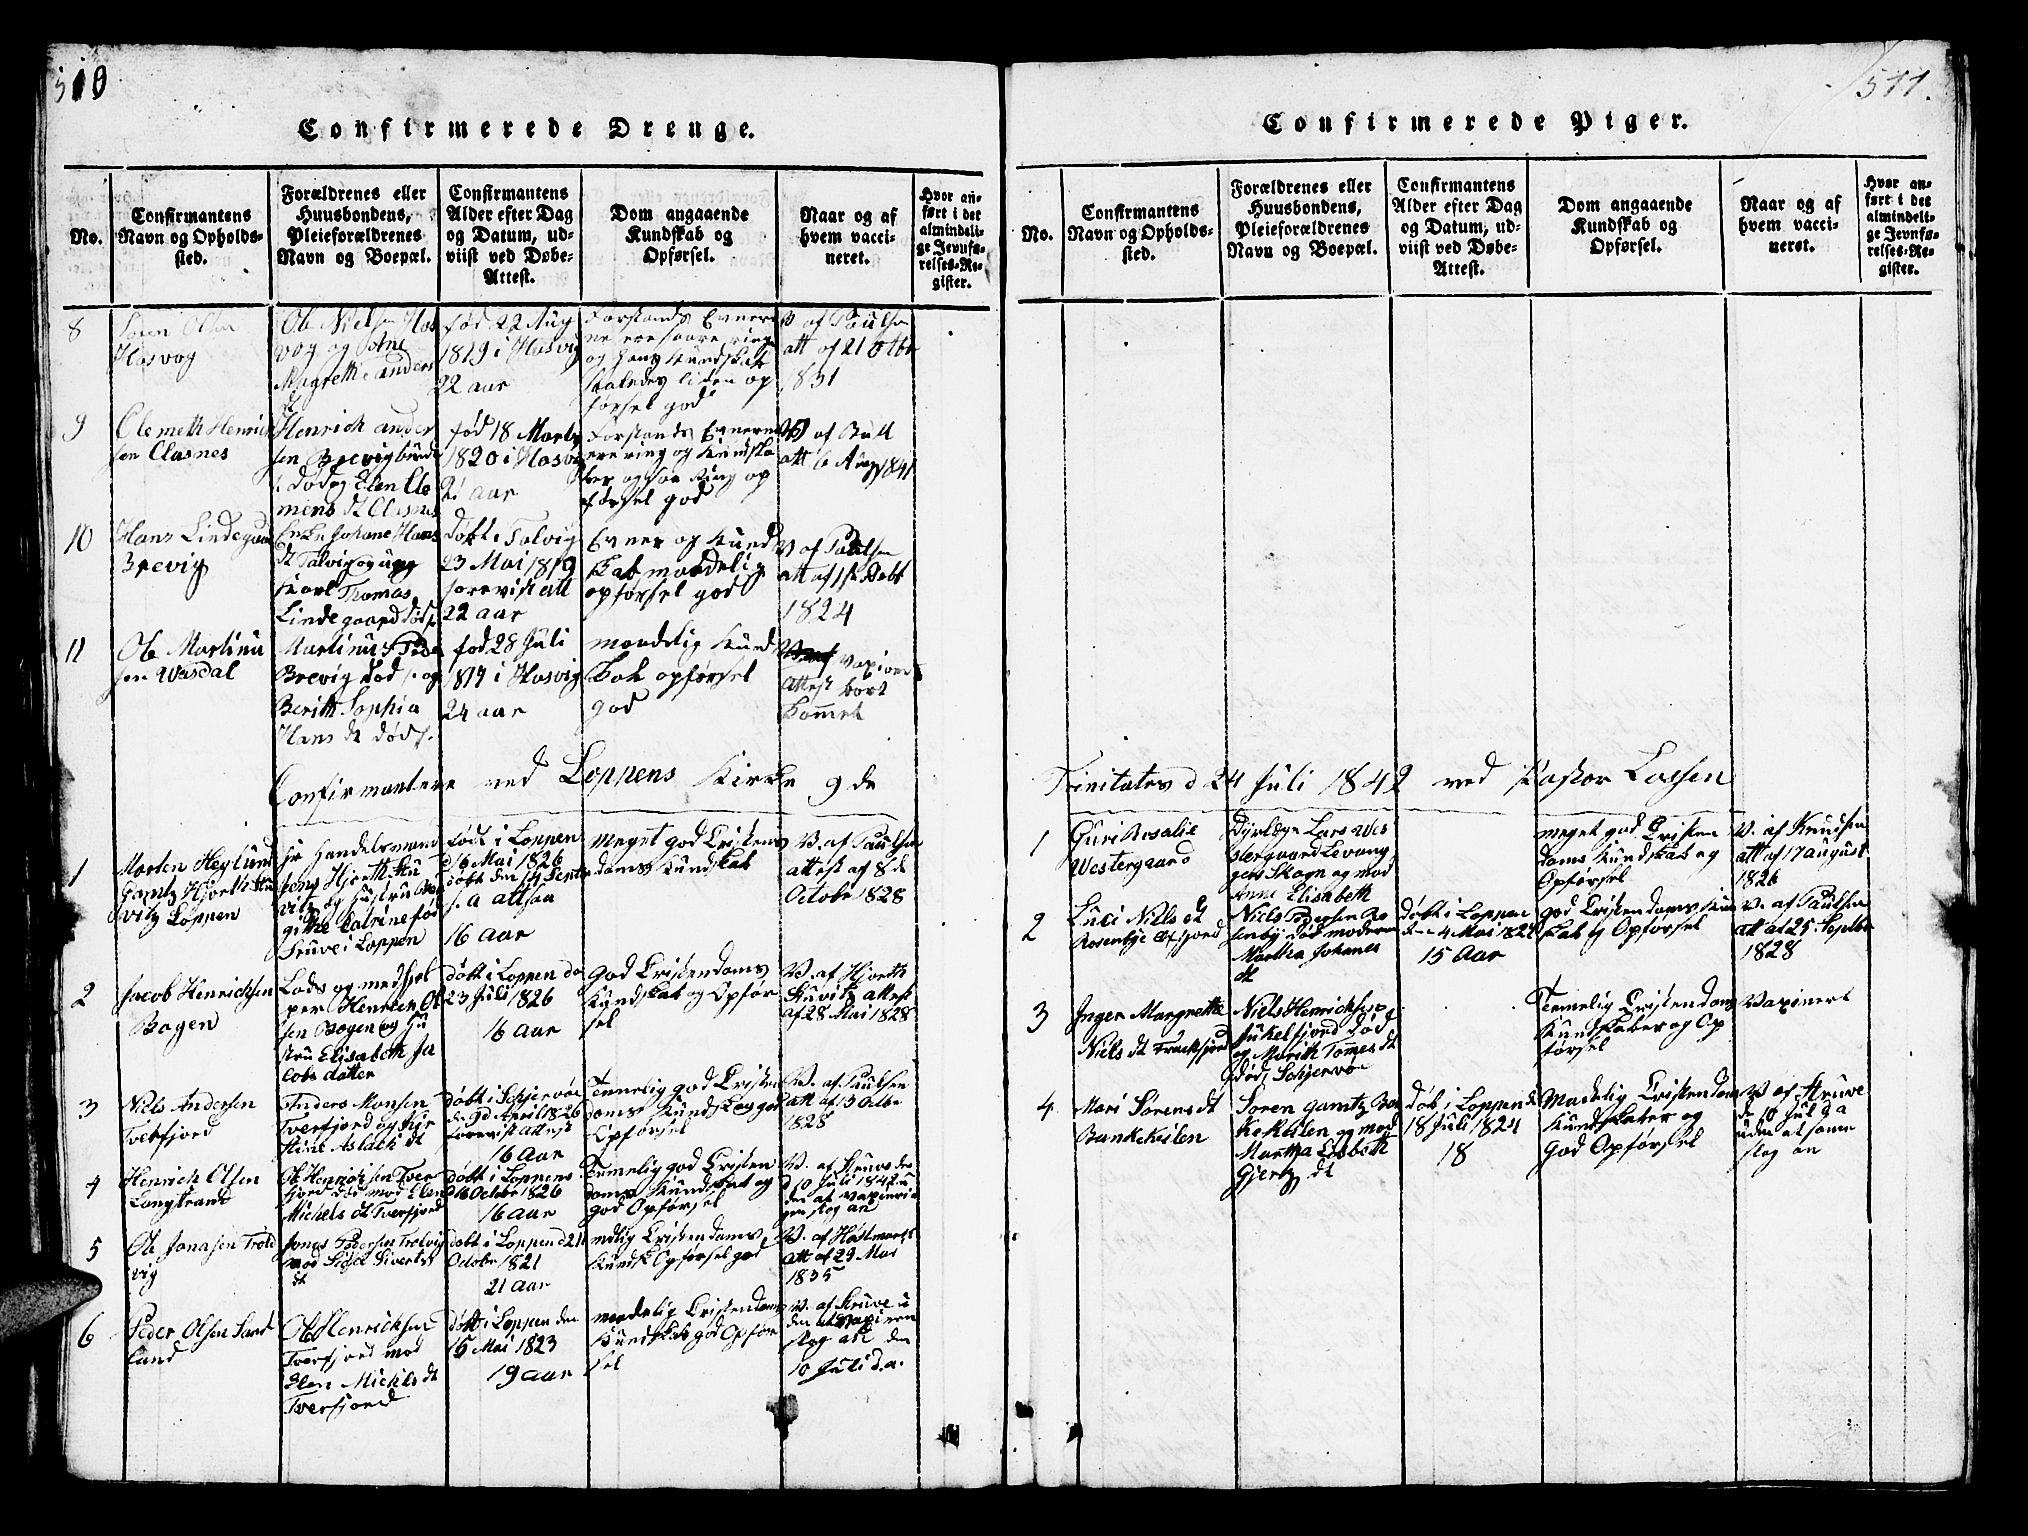 510
Confirmerede Drenge.
No.
Confirmantens
Navn og Opholds-
sted.
Forældrenes eller
Huusbondens,
Pleieforældrenes
Navn og Boepæl.
Confirmantens
Alder efter Dag
og Datum, ud-
viist ved Døbe-
Attest.
Dom angaaende
Kundskab og
Opførsel.
Naar og af
hvem vacci-
neret.
Hvor an-
ført i det
almindeli-
ge Jevnfø-
relses-Re-
gister.
8
Søren Olsen
Hasvog
Ole Nielsen Has
vog og Ane
Magrethe anders
dt
fød 22 Aug
1819 i Hasvig
22 aar
Forstands Evner
ne ere saare ringe
og hans Kundskab
ligeledes liden op
førsel god
V af Paulsen
att af 21 Otbr
1831
9
Clemeth Henrich
sen Clasnes
Henrich ander
sen Brevig
død og Elen Cle
mens dt Clasnes
fød 18 Marty
1820 i Hasvig
21 aar
Forstands Evnerne
ere ring og Kundska
ber ogsaa Ring op
førsel god
V af Bull
att 6 Aug 1841
10
Hans Lindegaard
Brevig
Enke Johane Hans
dt Talvig og ung
Karl Thomas
Lindegaard død
døbt i Talvig
23 Mai 1819
forevist att
22 aar
Evner og Kund
skab maadelig
opførsel god
V af Paulsen
att af 1ste Octb
1824
11
Ole Martinu
sen Wasdal
Martinus Peder
Brevig død og
Berith Sophia
Hans dt død
fød 28 Juli
1817 i Hasvig
24 aar
maadelig Kund
skab opførsel
god
vaxineer
attest bort
kommet
Confirmantene ved Loppens Kirke 9 de
1
Morten Heglund
Gamtz Hjorth Stu
vitz Loppen
Hr Handelsmand
Jens Hjorth Stu
vitz og Hustru Bir
githe Catrine fød
Struve i Loppen
født i Loppen
d 16 Mai 1826
døbt den 14 Septr
s. a attsaa
16 aar
Meget god Cristen
doms Kundskab
V. af Paulsen
attest af 8 de
Octobr 1828
2
Jacob Henrichsen
Bogen
Lods og medhjel
per Henrich Ol
sen Bogen og Hu
stru Elisabeth Ja
cobs datter
døbt i Loppen de
23 Juli 1826
16 aar
God Cristendoms
Kundskab og Opfør
sel
V. af Hjorth
Stuvitz attest
af 28 Mai 1828
3
Niels Andersen
Tverfjord
Anders Monsen
Tverfjord og Kir
stine Aslack dt
døbt i Schjervøe
de 9d April 1826
forevist attest
16 aar
Temmelig god Cristen
doms Kundskab og god
Opførsel
V. af Paulsen
att af 13 Octbr
1828
4
Henrich Olsen
Langstrand
Ole Henrichsen Tver
fjord død mod Elen
Michels dt Tverfjord
døbt i Loppens
d 16 Octobr 1826
16 aar
Temelig god Cristen
doms Kundskab og
god Opførsel
V. af Struve de
d 10 Juli 1842 u
den at vaxineri
gen slog an
5
Ole Jonasen Trold
vig
Jonas Pedersen Trolvig
mod Sigel Siverts
dt
døbt i Loppen d 21
Octobr 1821
21 aar
mdlig Cristendoms
Kundsk Opførsel god
V. af Holtmark
att af 29 Mai
1835
6
Peder Olsen Sand
land
Ole Henrichsen
Tverfjord mod
Elen Michels dt
Tverfjord
døbt i Loppen den
16 Mai 1823
19 aar
maadelig Cristendoms
Kundskab god Opfør
sel
V. af Struve u
den at vaxinen
slog att den
10 Juli d.a.
511.
Confirmerede Piger.
No.
Confirmantens
Navn og Opholds-
sted.
Forældrenes eller
Huusbondens,
Pleieforældrenes
Navn og Boepæl.
Confirmantens
Alder efter Dag
og Datum, ud-
viist ved Døbe-
Attest.
Dom angaaende
Kundskab og
Opførsel.
Naar og af
hvem vacci-
neret.
Hvor an-
ført i det
almindeli-
ge Jevnfø-
relses-Re-
gister.
Trinitates d 24 Juli 1842 ved Pastor Lassen
1
Guri Rosalie
Westergaard
Dyrlæge Lars Wes
tergaard Levang
gers Skogn og mod
Anne Elisabeth
meget god Cristen
doms Kundskab og
Opførsel
V. af Knudsen
att af 17 august
1826
2
Luci Niels dt
Rosenbye Øksfjord
Niels Pedersen Ro
senby død moderen
Martha Johanes
dt
døbt i Loppen
den 4 Mai 1827
15 Aar
god Cristendoms Kun
skab og Opførsel
V. af Paulsen
att af 25 Septbr
1828
3
Inger Margrethe
Niels dt Frackfjord
Niels Henrichsen
Jukelfjord død
og Marith Tomes dt
død, Schjervøe
Temmelig Cristendoms
Kundskaber og Op
førsel
Vaxinert
4
Mari Sørens dt
Bankekeilen
Søren Gamtz Ban
kekeilen og mod
Martha Lisbeth
Gjertz dt
døbt i Loppen d
18 Juli 1824
18
Maadelig Cristendoms
Kundskaber og
God Opførsel
V af Struve
de 10 Jul d a
uden at samme
slog an